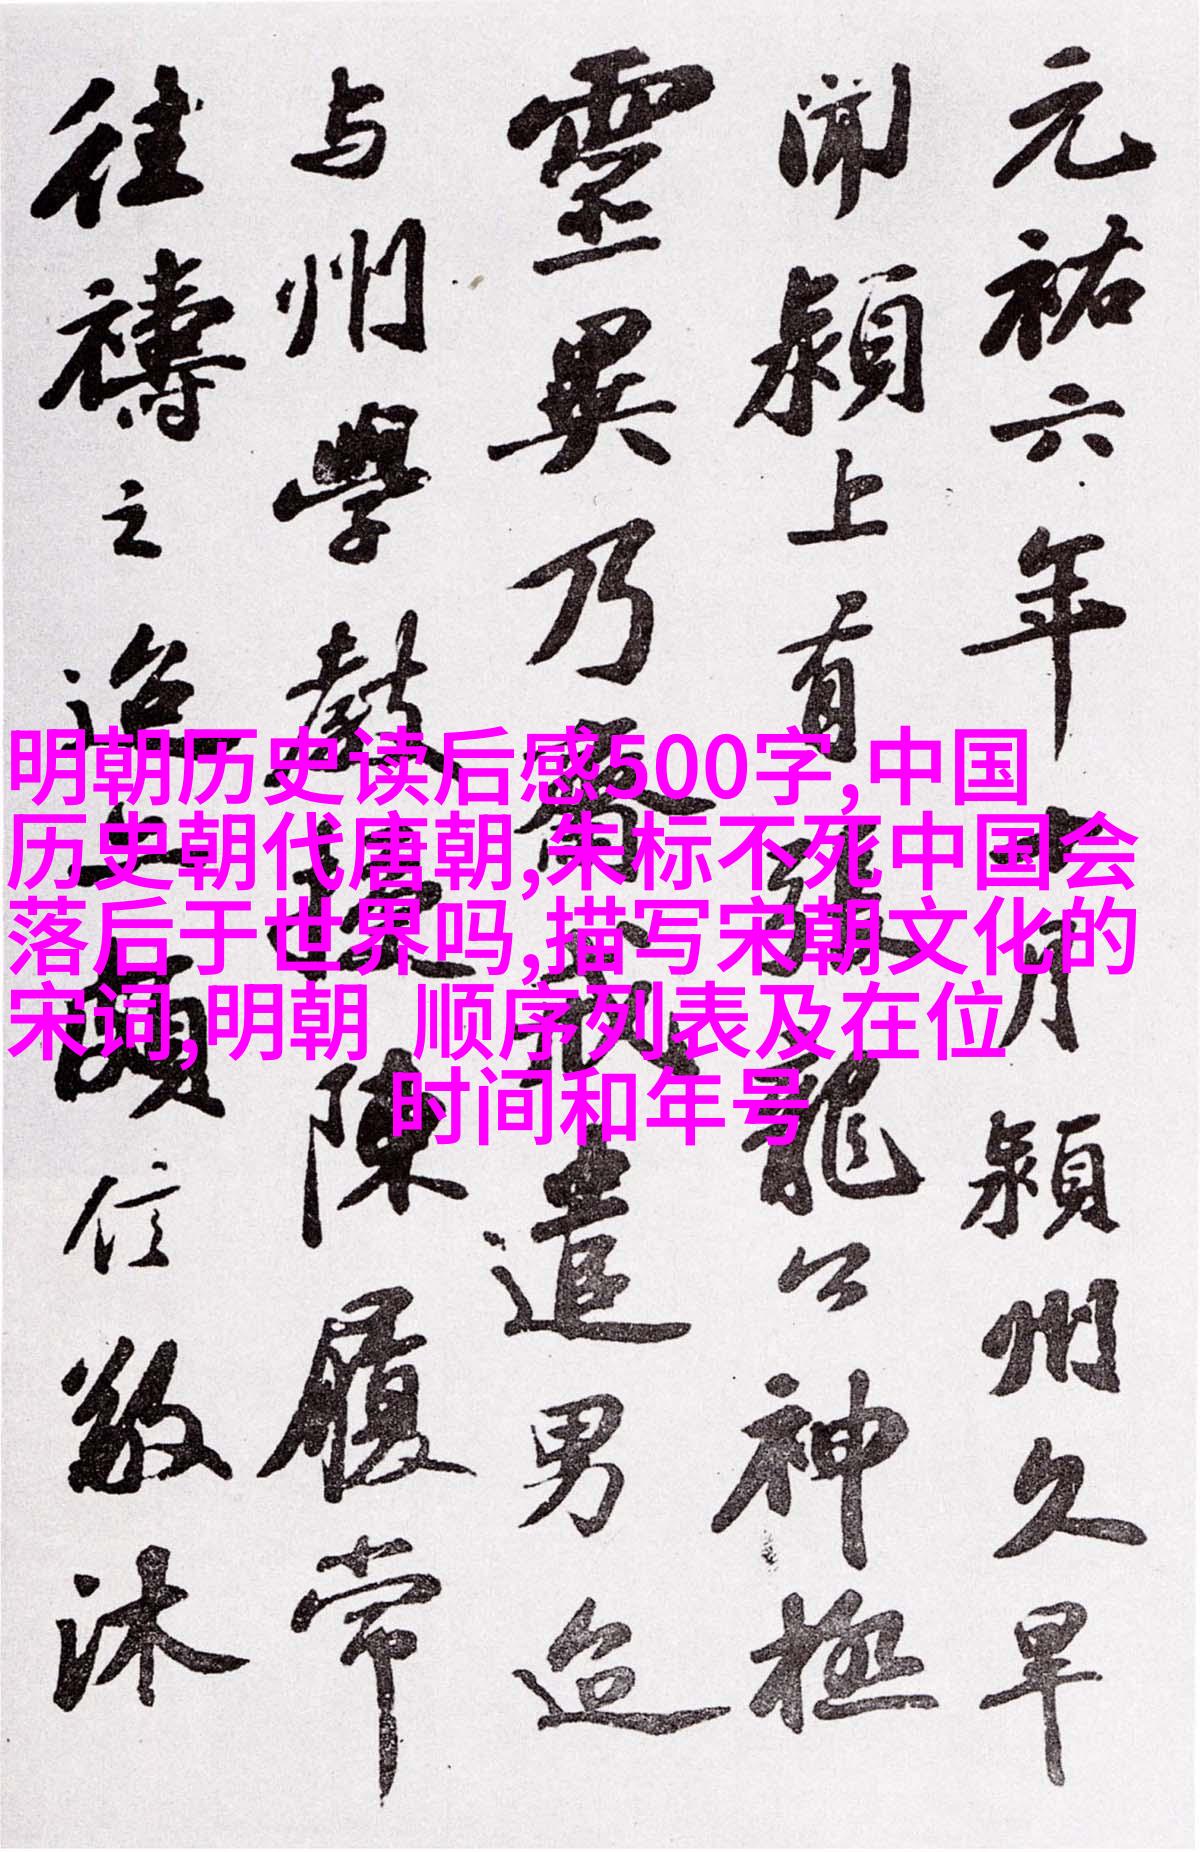 元祐六年十月潁州久旱
聞潁上有張龍公神極
靈異乃齋戒遣男迨
与州學教授陳履常
往禱之迨亦頗信敬沐
明朝历史读后感500字,中国
历史朝代唐朝,朱标不死中国会
落后于世界吗,描写宋朝文化的
宋词,明朝 顺序列表及在位
时间和年号